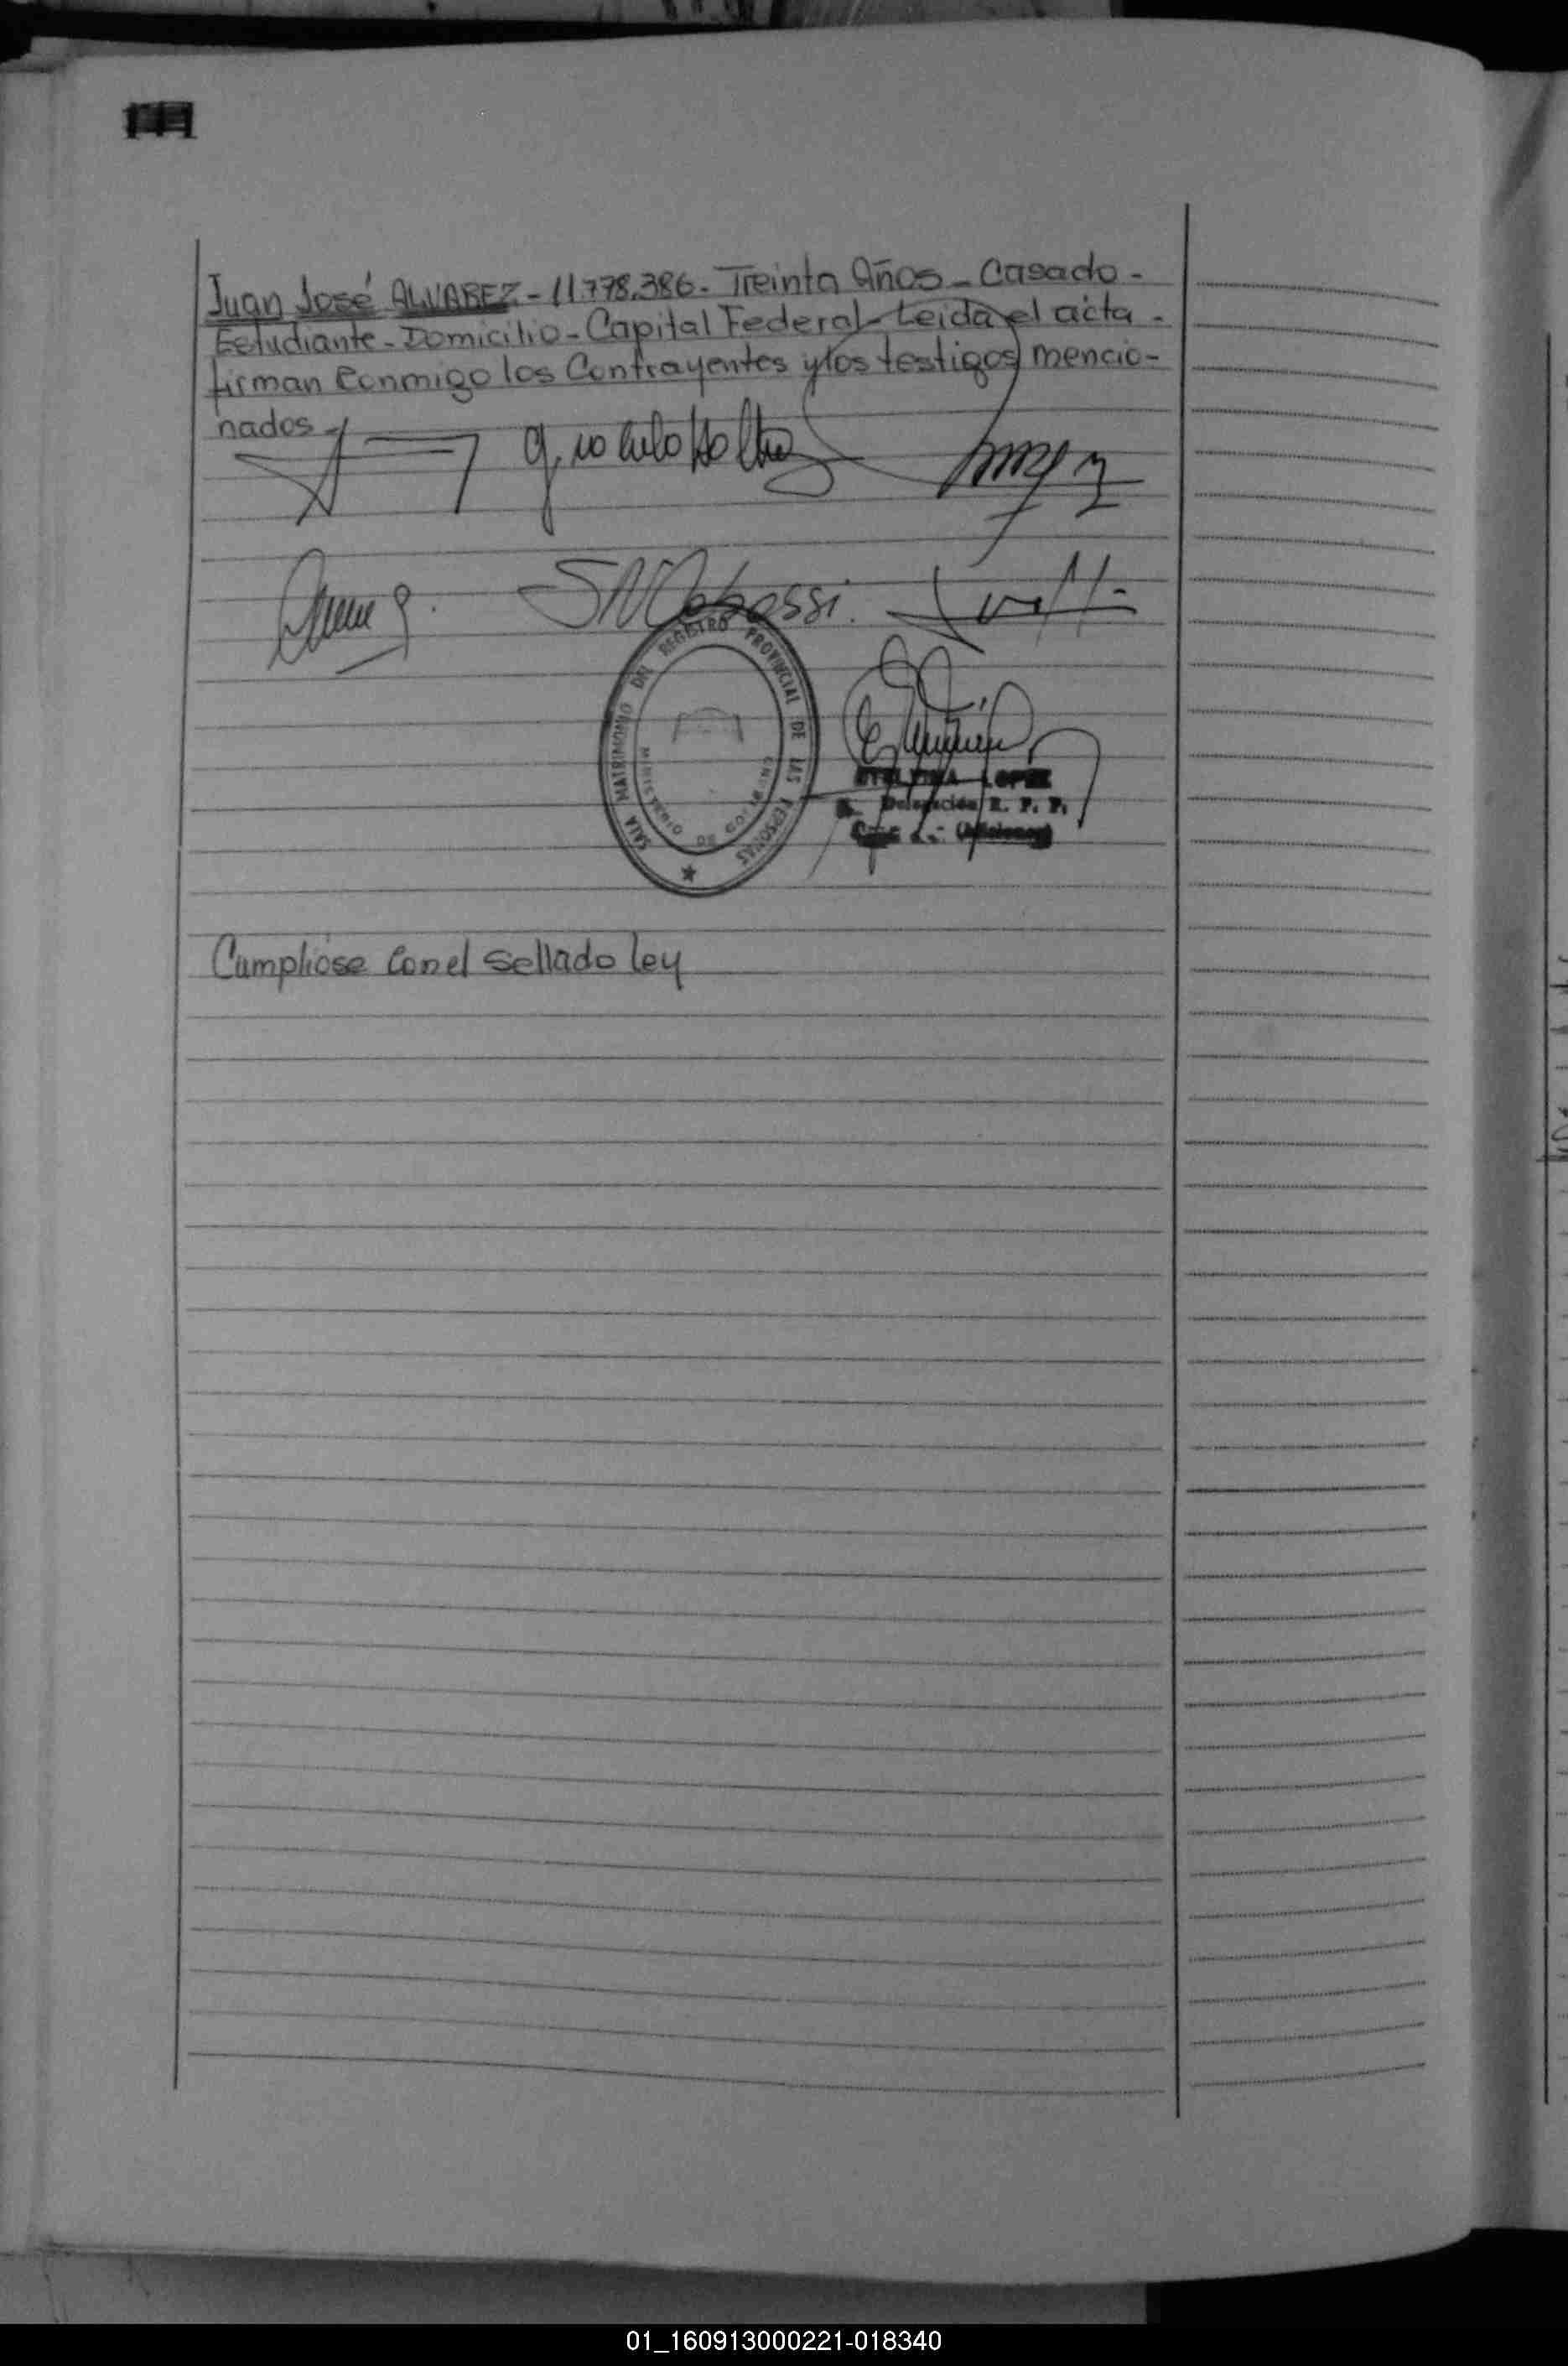 Juan José ALVAREZ - 11.778.386 - Treinta Años - Casado -
Estudiante - Domicilio - Capital Federal - Leida el acta -
firman Conmigo los Contrayentes y los testigos mencio-
nados -
SALA MATRIMONIO DEL REGISTRO PROVINCIAL DE LAS PERSONAS
MINISTERIO DE GOBIERNO
LOPEZ
Delegación R. P. P.
(Misiones)
Cumplióse Con el Sellado Ley
01_160913000221-018340